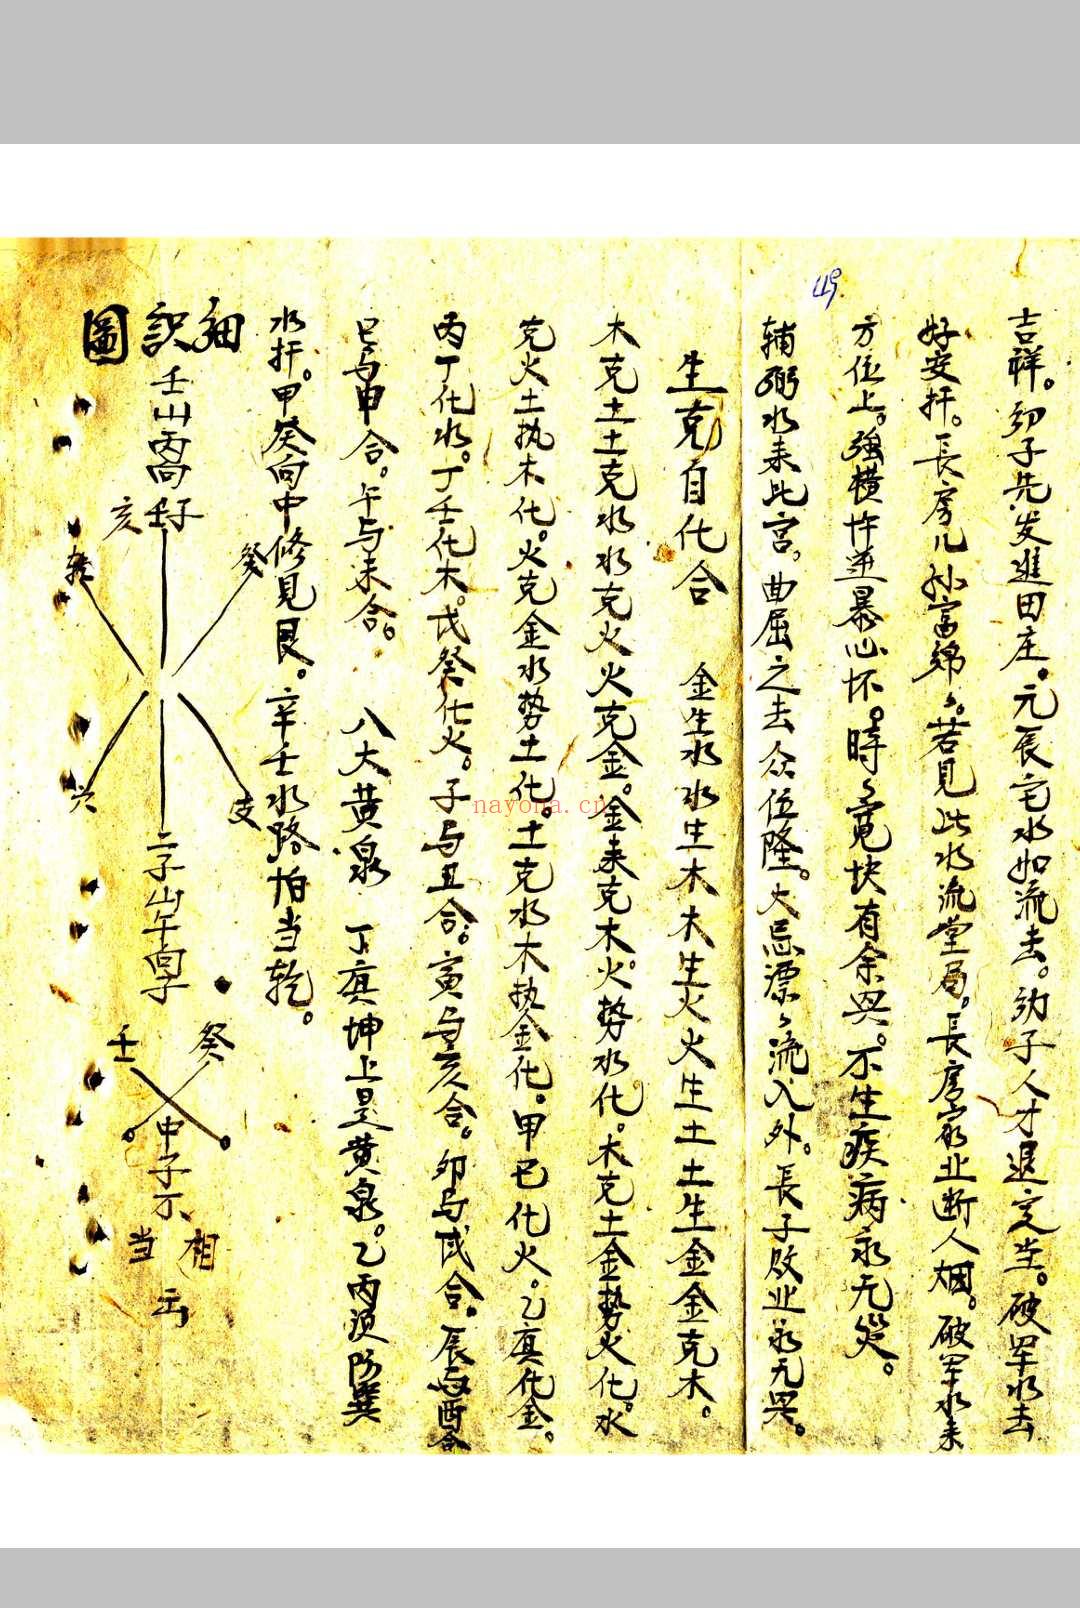 49
吉祥。幼子先发進田庄。元辰宅水如流去。幼子人才退定生。破军水去
好安扦。長房儿孙富綿々。若見此水流堂局。長房家业断人烟。破军水来
方位上。强横忤逆暴心怀。時々寛快有余兴。不生疾病永无災。
辅弼水来此宫。曲屈之去众位隆。大忌漂々流入外。長子败业永无兴。
生克自化合 金生水水生木木生火火生土土生金金克木。
木克土土克水水克火火克金。金来克木。火势水化。木克土金势火化。水
克火土执木化。火克金水势土化。土克水木执金化。甲巳化火。乙庚化金。
丙丁化水。丁壬化木。戊癸化火。子与丑合。寅与亥合。卯与戌合。辰与酉合
巳与申合。午与未合。 八大黄泉 丁庚坤上是黄泉。乙丙須防巽
水扦。甲癸向中修見艮。辛壬水路怕当乾。
細訳圖
壬山丙
亥 壬子
癸
乾
兴
支
二子山午
癸
壬
中子不
相
当